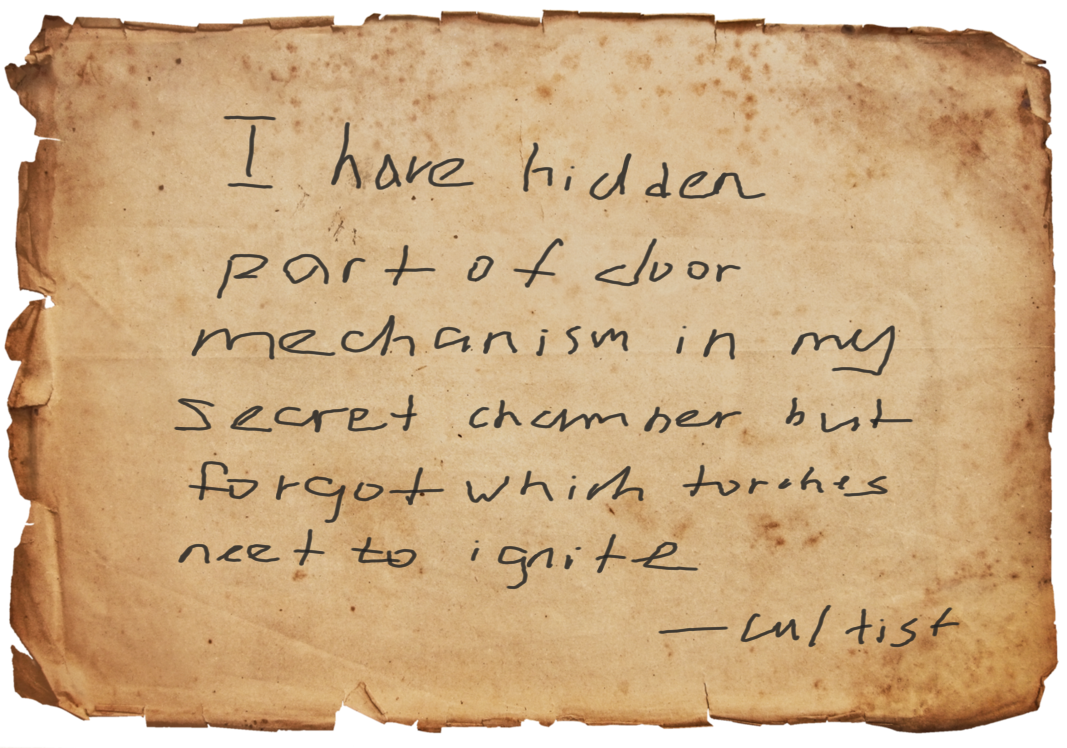 I have hidden
part of door
mechanism in my
secret chamber but
forgot which torches
neet to ignite
—cultist